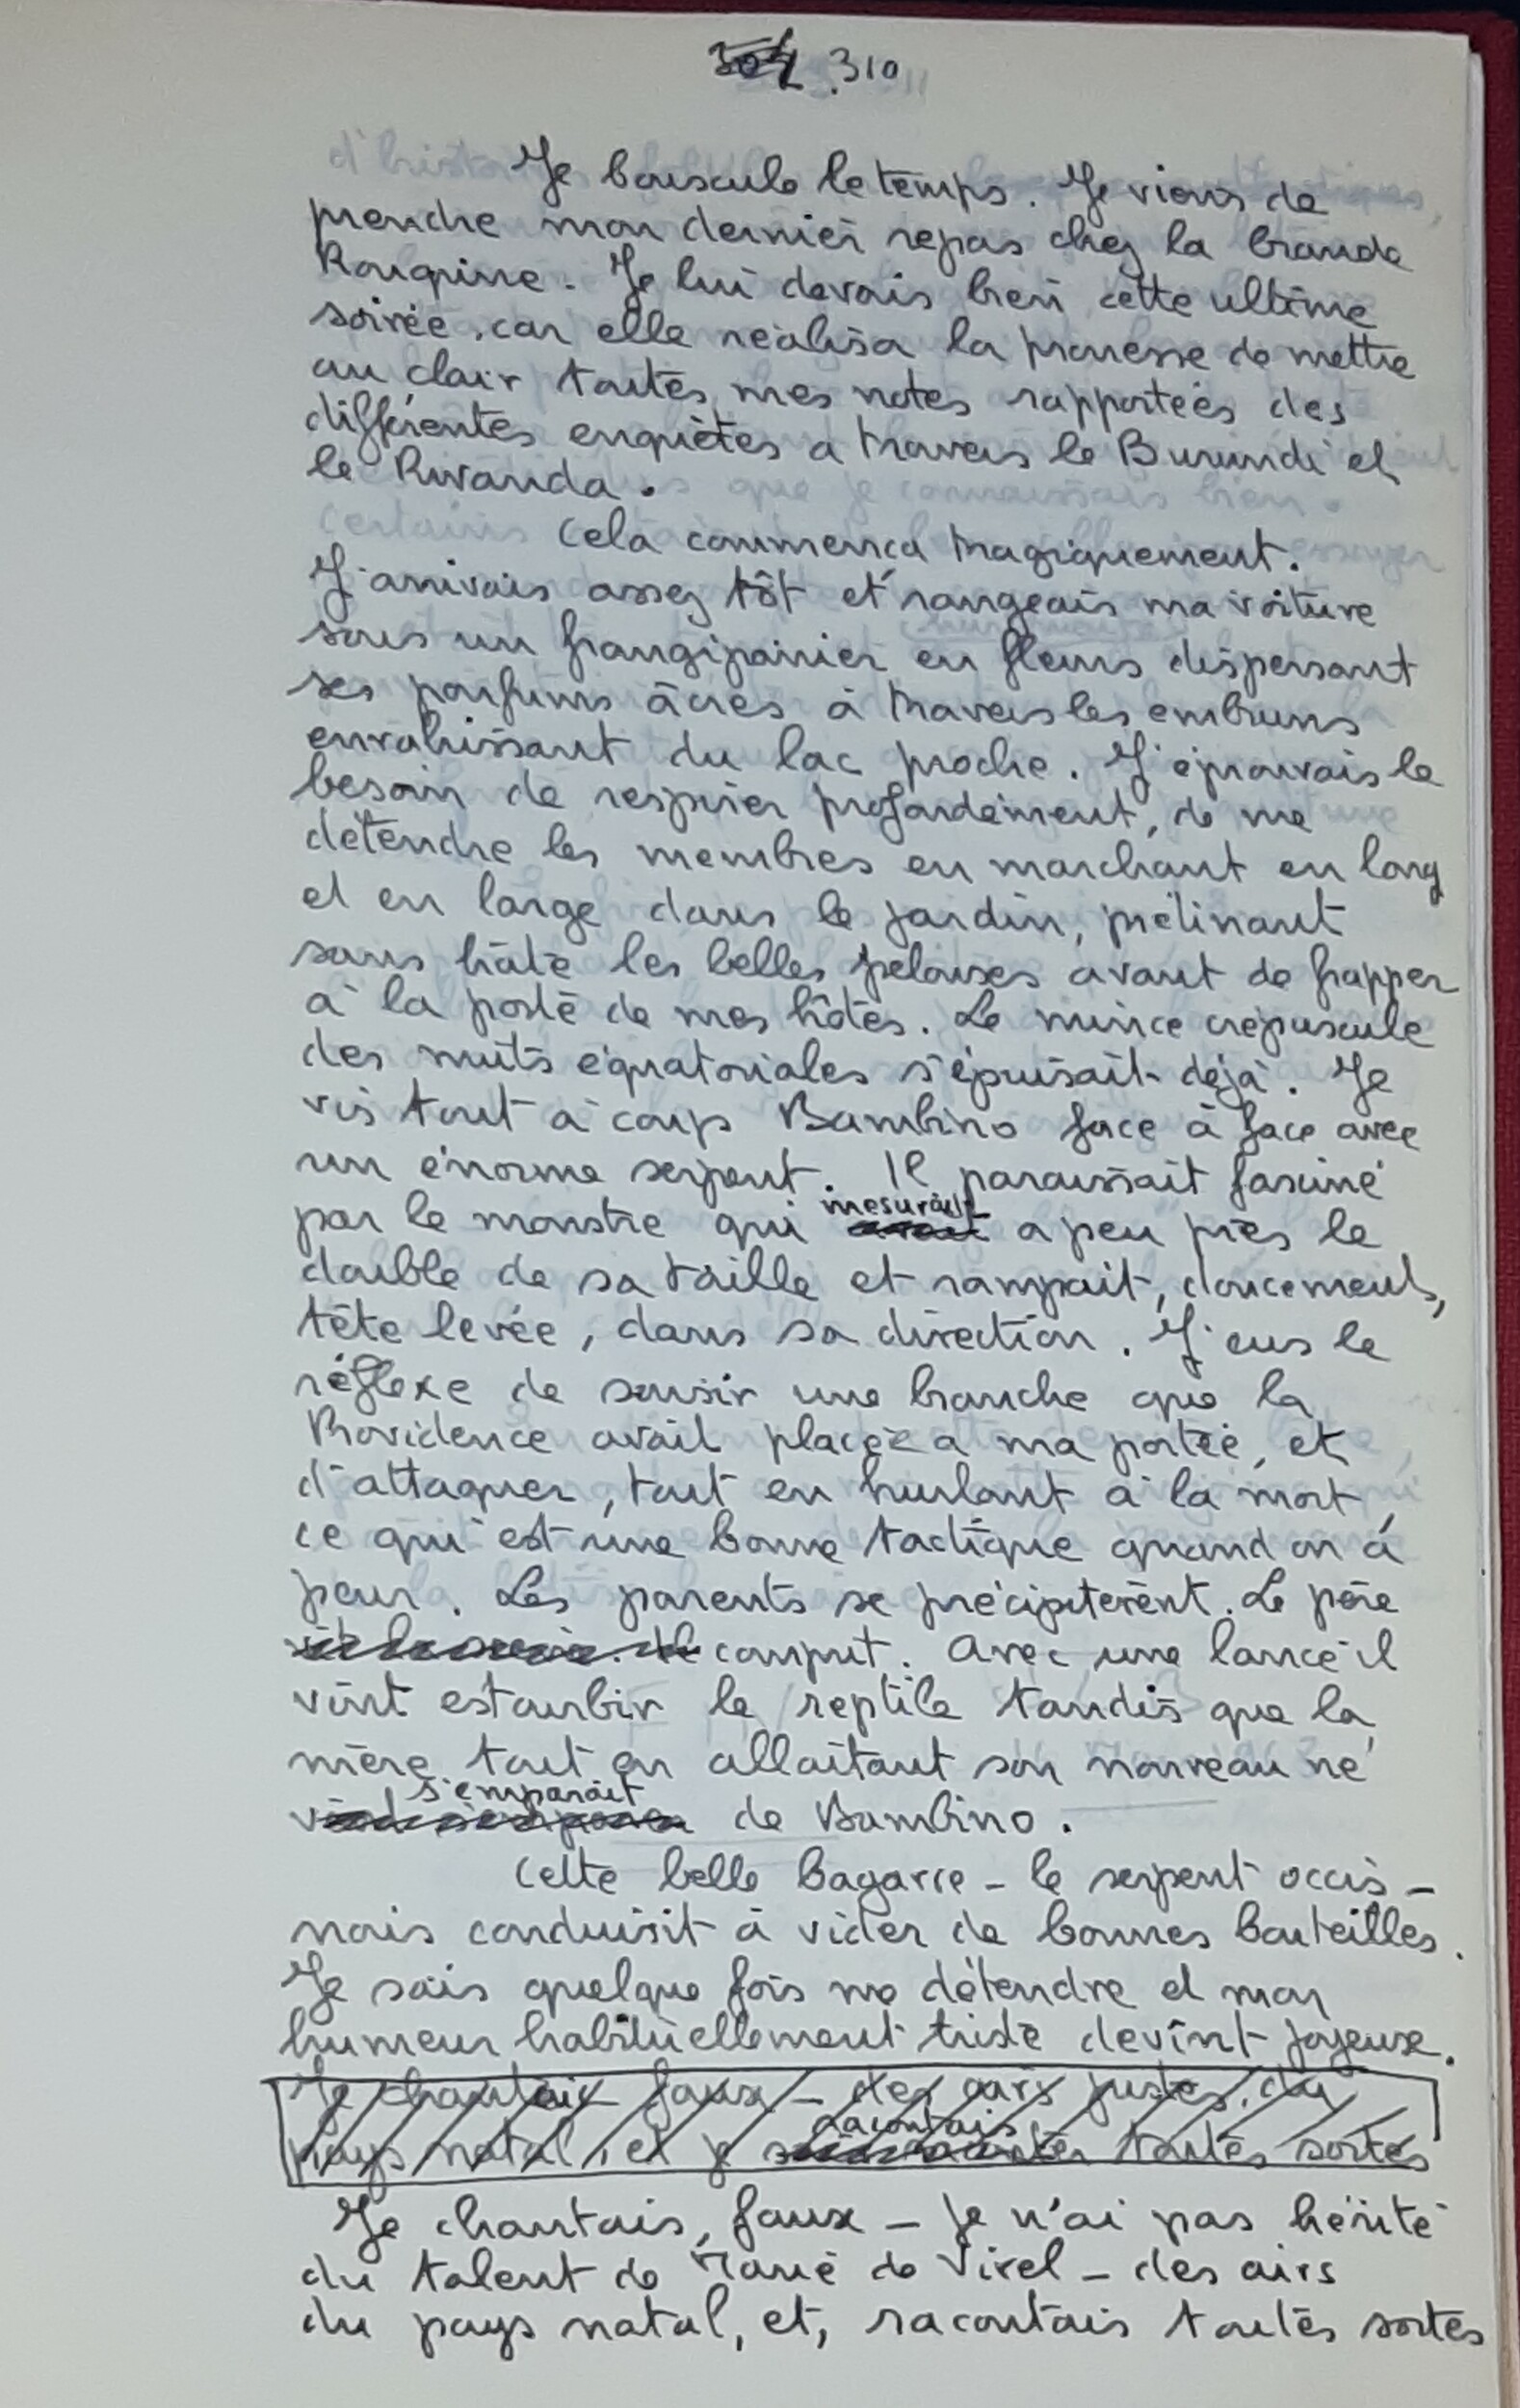 304 310
Je bouscule le temps. Je viens de
prendre mon dernier repas chez la Grande
Rouquine. Je lui devais bien cette ultime
soirée, car elle réalisa la prouesse de mettre
au clair toutes mes notes rapportées des
différentes enquêtes a travers le Burundi et
le Rwanda.
Cela commença tragiquement.
J'arrivais assez tôt et rangeais ma voiture
sous un frangipanier en fleurs dispersant
ses parfums âcres à travers les embruns
envahissant du lac proche. J'éprouvais le
besoin de respirer profondément, de me
détendre les membres en marchant en long
et en large dans le jardin, piétinant
sans hâte les belles pelouses avant de frapper
à la porte de mes hôtes. Le mince crépuscule
des nuits équatoriales s'épuisait déjà. Je
vis tout à coup Bambino face à face avec
un énorme serpent. Il paraissait fasciné
par le monstre qui mesurait a peu près le
double de sa taille et rampait, doucement,
tête levée, dans sa direction. J'eus le
réflexe de saisir une branche que la
Providence avait placée a ma portée, et
d'attaquer, tout en hurlant à la mort,
ce qui est une bonne tactique quand on a
peur. Les parents se précipitèrent. Le père
comprit. Avec une lance il
vint estourbir le reptile tandis que la
mère tout en allaitant son nouveau né
s'emparait de Bambino.
Cette belle bagarre - le serpent occis -
nous conduisit à vider de bonnes bouteilles.
Je sais quelque fois me détendre et mon
humeur habituellement triste devint joyeuse.
Je chantais faux - des airs justes, du
pays natal, et je racontais toutes sortes
Je chantais, faux - je n'ai pas hérité
du talent de de Virel - des airs
du pays natal, et, racontais toutes sortes